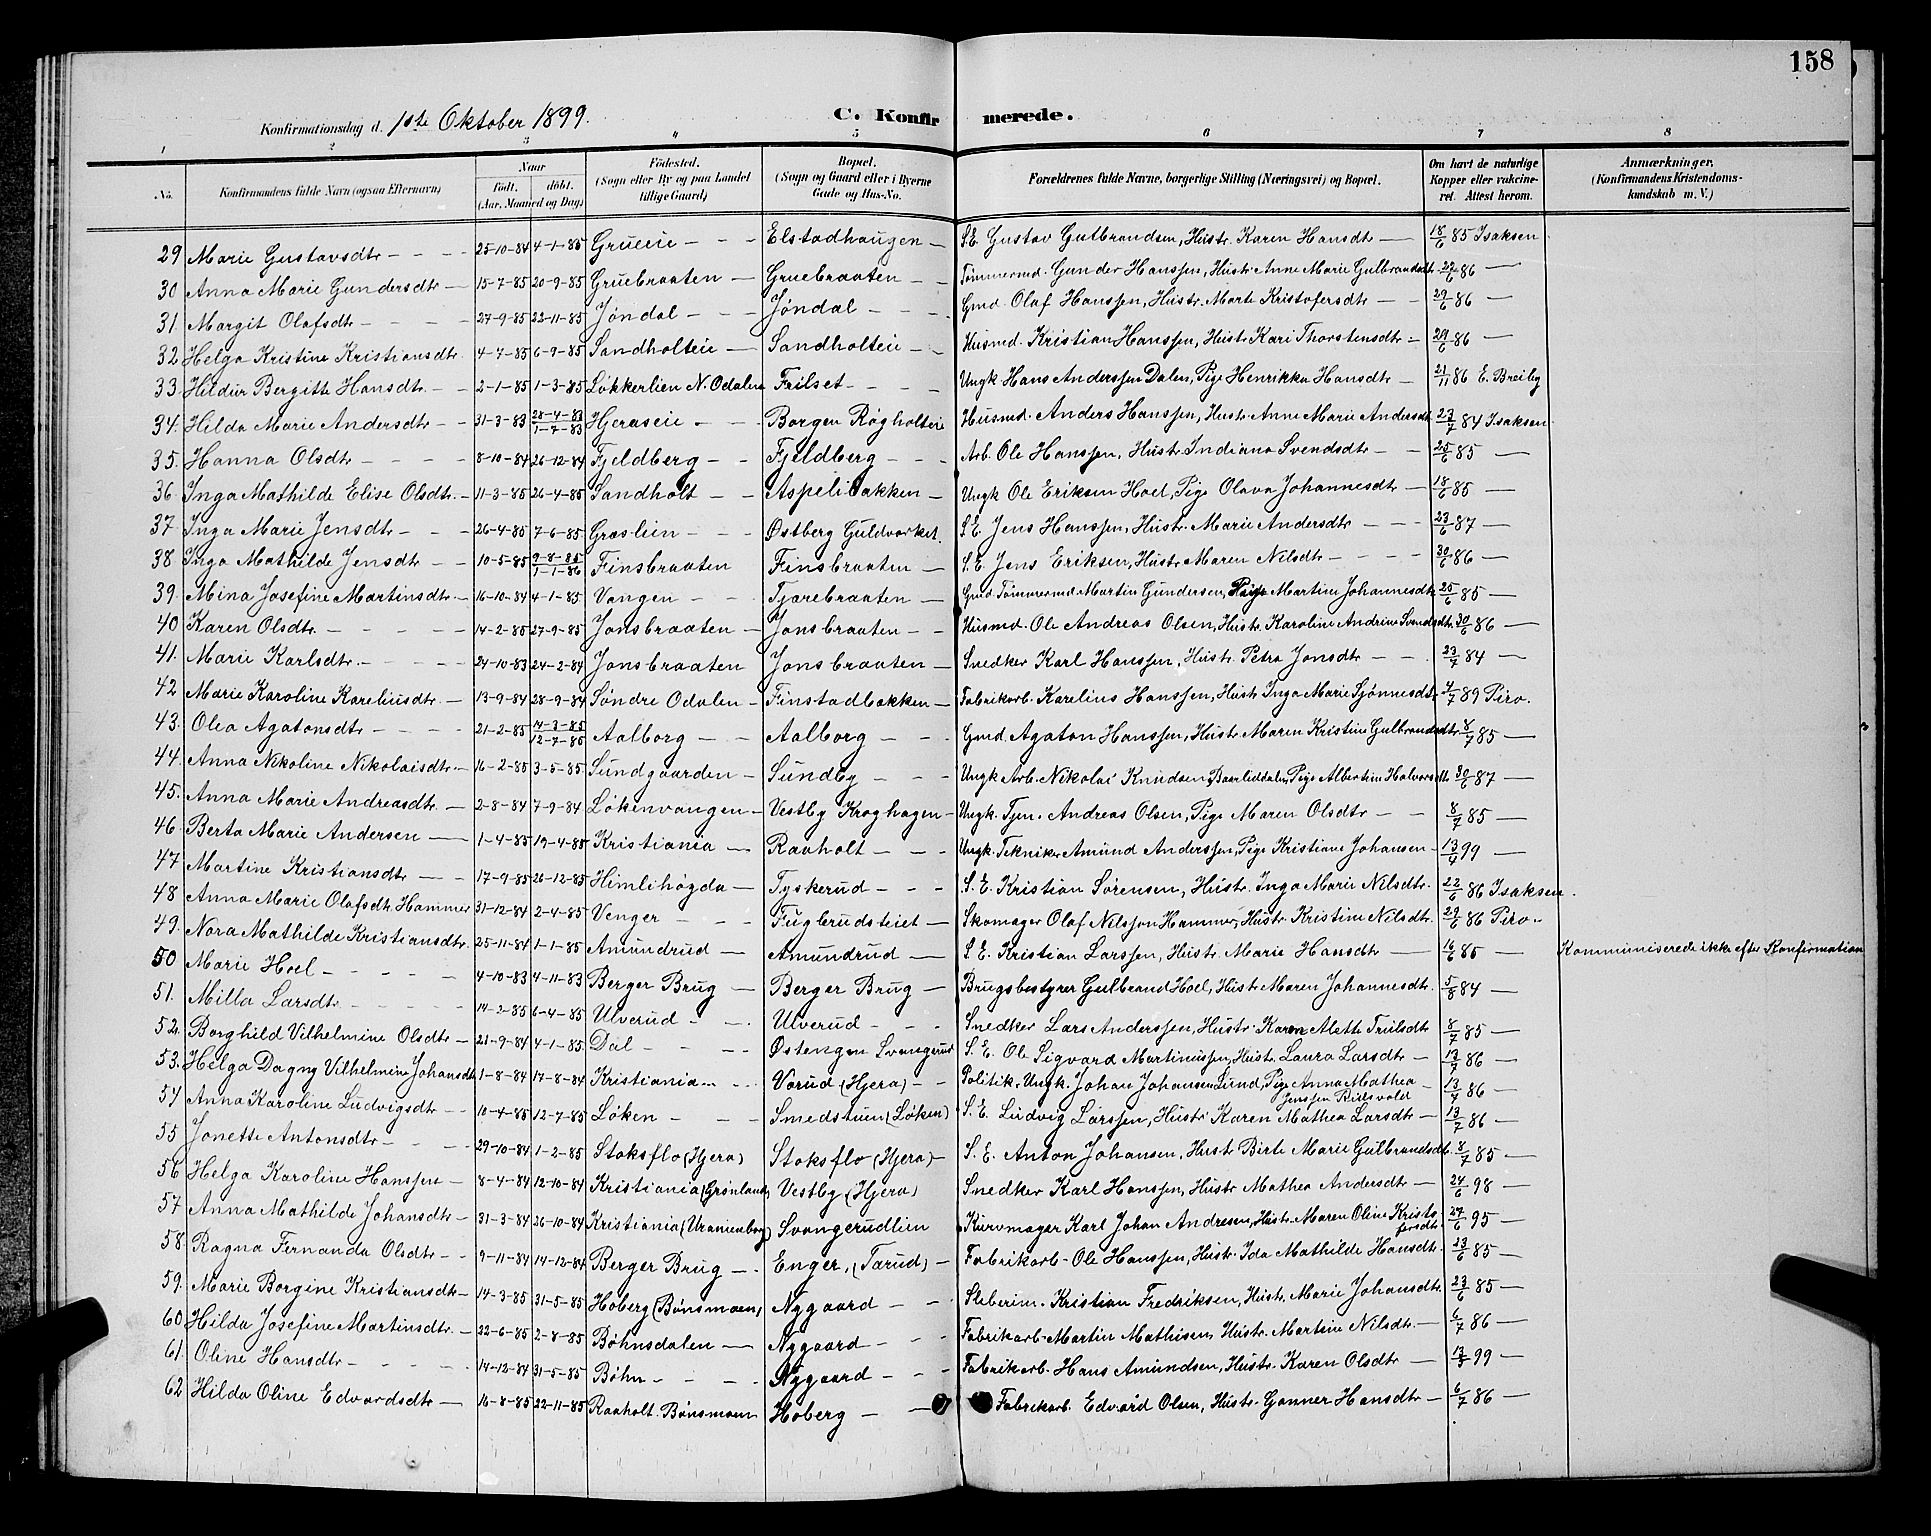 158
Konfirmationsdag d. 1ste Oktober 1899.
C. Konfirmerede.
1 2 3 4 5 6 7 8
No. | Konfirmandens fulde Navn (ogsaa Efternavn) | Naar født. døbt. (Aar, Maaned og Dag) | Fødested. (Sogn eller By og paa Landet tillige Gaard) | Bopæl. (Sogn og Gaard eller i Byerne Gade og Hus-No. | Forældrenes fulde Navne, borgerlige Stilling (Næringsvei) og Bopæl. | Om havt de naturlige Kopper eller vakcineret. Attest herom. | Anmærkninger. (Konfirmandens Kristendomskundskab m. V.)
29 Marie Gustavsdtr 25-10-84 4-1-85 Grueeie Elstadhaugen S.E. Gustav Gulbrandsen, Hustr. Karen Hansdtr 18/6 85 Isaksen
30 Anna Marie Gundersdtr 15-7-85 20-9-85 Gruebraaten Gruebraaten Tømmermd. Gunder Hanssen, Hustr Anne Marie Gulbrandsdtr 22/6 86
31. Margit Olafsdtr 27-9-85 22-11-85 Jøndal Jøndal Gmd. Olaf Hanssen, Hustr. Marte Kristofersdtr 29/6 86
32 Helga Kristine Kristiansdtr 4-7-85 6-9-85 Sandholteie Sandholteie Husmd. Kristian Hanssen, Hustr Kari Thorstensdtr 29/6 86
33. Hildur Bergitte Hansdtr 2-1-85 1-3-85 Løkkerlien N. Odalen Frilset Ungk Hans Anderssen Dalen, Pige Henrikka Hansdtr 21/11 86 E. Breiby
34. Hilda Marie Andersdtr 31-3-83 28-4-83 1-7-83 Hjeraseie Borgen Røgholteie Husmd. Anders Hanssen, Hustr. Anne Marie Andersdtr 23/7 84 Isaksen
35. Hanna Olsdtr 8-10-84 26-12-84 Fjeldberg Fjeldberg Arb. Ole Hanssen, Hustr. Indiana Svendsdtr 25/6 85
36 Inga Mathilde Elise Olsdtr. 11-3-85 26-4-85 Sandholt Aspelibakken Ungk Ole Eriksen Hoel, Pige Olava Johannesdtr 18/6 85
37 Inga Marie Jensdtr 26-4-85 7-6-85 Graslien Østberg Guldverket. S.E. Jens Hanssen, Hustr. Marie Andersdtr 23/6 87
38 Inga Mathilde Jensdtr 10-5-85 9-8-85 1-1-86 Finsbraaten Finsbraaten S.E. Jens Eriksen, Hustr Maren Nilsdtr 30/6 86
39. Mina Josefine Martinsdtr 16-10-84 4-1-85 Vangen Tjærebraaten Gmd. Tømmermd Martin Gundersen, Pige Martine Johannesdtr 25/6 85
40 Karen Olsdtr. 14-2-85 27-9-85 Jonsbraaten Jonsbraaten Husmd. Ole Andreas Olsen, Hustr. Karoline Andrine Svendsdtr. 30/6 86
41. Marie Karlsdtr. 24-10-83 24-2-84 Jonsbraaten Jonsbraaten Snedker Karl Hanssen, Hustr. Petra Jonsdtr 23/7 84
42 Marie Karoline Kareliusdtr. 13-9-84 28-9-84 Søndre Odalen Finstadbakken Fabrikarb. Karelius Hanssen, Hustr Inga Marie Sjønnesdtr 4/7 89 Piro.
43. Olea Agatonsdtr 21-2-85 4-3-85 12-7-85 Aalborg Aalborg Gmd. Agaton Hanssen, Hustr Maren Kristine Gulbrandsdtr 8/7 85
44. Anna Nikoline Nikolaisdtr. 16-2-85 3-5-85 Sundgaarden Sundby Ungk Arb. Nikolai Knudsen Daaliddalen, Pige Albertine Halvorsdtr 30/6 87
45. Anna Marie Andreasdtr. 2-8-84 7-9-84 Løkenvangen Vestby Kroghagen Ungk. Tjen. Andreas Olsen, Pige Maren Olsdtr 8/7 85
46. Berta Marie Andersen 1-4-85 19-4-85 Kristiania Raaholt Ungk. Tekniker Amund Anderssen, Pige Kristiane Johansen 13/4 99
47 Martine Kristiansdtr 17-9-85 26-12-85 Himlihøgda Tyskerud S.E. Kristian Sørensen, Hustr. Inga Marie Nilsdtr. 22/6 86 Isaksen.
48 Anna Marie Olafsdtr. Hammer 31-12-84 2-4-85 Venger Fuglerudsteiet Skomager Olaf Nilssen Hammer, Hustr. Kristine Nilsdtr. 29/6 86 Piro.
49. Nora Mathilde Kristiansdtr. 25-11-84 1-1-85 Amundrud Amundrud S.E. Kristian Larssen, Hustr. Marie Hansdtr 16/6 85 Kommuniserede ikke efter Konfirmation
50 Marie Hoel 4-10-83 4-11-83 Berger Brug Berger Brug Brugsbestyrer Gulbrand Hoel, Hustr Maren Johannesdtr. 5/8 84
51. Milla Larsdtr 14-2-85 6-4-85 Ulverud Ulverud Snedker Lars Anderssen, Hustr. Karen Alette Trulsdtr 8/7 85
52. Borghild Vilhelmine Olsdtr 21-9-84 4-1-85 Dal Østengen Svangerud S.E. Ole Sigvard Martinussen, Hustr. Laura Larsdtr 13/7 86
53. Helga Dagny Vilhelmine Johansdtr 1-8-84 17-8-84 Kristiania Vorud (Hjera) Politik. Ungk. Johan Johansen Lund, Pige Anna Mathea Jenssen Rudsvold 13/7 86
54 Anna Karoline Ludvigsdtr 10-4-85 12-7-85 Løken Smedstuen (Løken) S.E. Ludvig Larssen, Hustr Karen Mathea Larsdtr 13/7 86
55 Jonette Antonsdtr 29-10-84 1-2-85 Stoksflo (Hjera) Stoksflo (Hjera) S.E. Anton Johansen, Hustr Birte Marie Gulbrandsdtr. 8/7 85
56 Helga Karoline Hanssen 8-4-84 12-10-84 Kristiania (Grønland) Vestby (Hjera) Snedker Karl Hanssen, Hustr Mathea Andersdtr 24/6 98
57 Anna Mathilde Johansdtr 31-3-84 26-10-84 Kristiania (Uranienborg) Svangerudlien Kurvmager Karl Johan Andresen, Hustr. Maren Oline Kristofersdtr 29/6 95
58. Ragna Fernanda Olsdtr 9-11-84 14-12-84 Berger Brug Enger, (Tærud) Fabrikarb. Ole Hanssen, Hustr. Ida Mathilde Hansdtr. 23/6 85
59. Marie Borgine Kristiansdtr 14-3-85 31-5-85 Hoberg (Bønsmoen) Nygaard Sleberim. Kristian Fredriksen, Hustr. Marie Johansdtr 23/6 85
60 Hilda Josefine Martinsdtr. 22-6-85 2-8-85 Bøhnsdalen Nygaard Fabrikarb. Martin Mathisen, Hustr. Martine Nilsdtr. 6/7 86
61. Oline Hansdtr 14-12-84 31-5-85 Bøhn Nygaard Fabrikarb. Hans Amundsen, Hustr. Karen Olsdtr 13/3 99
62 Hilda Oline Edvardsdtr 16-8-85 22-11-85 Raaholt Bønsmoen Høberg Fabrikarb. Edvard Olsen, Hustr. Gonner Hansdtr 6/7 86